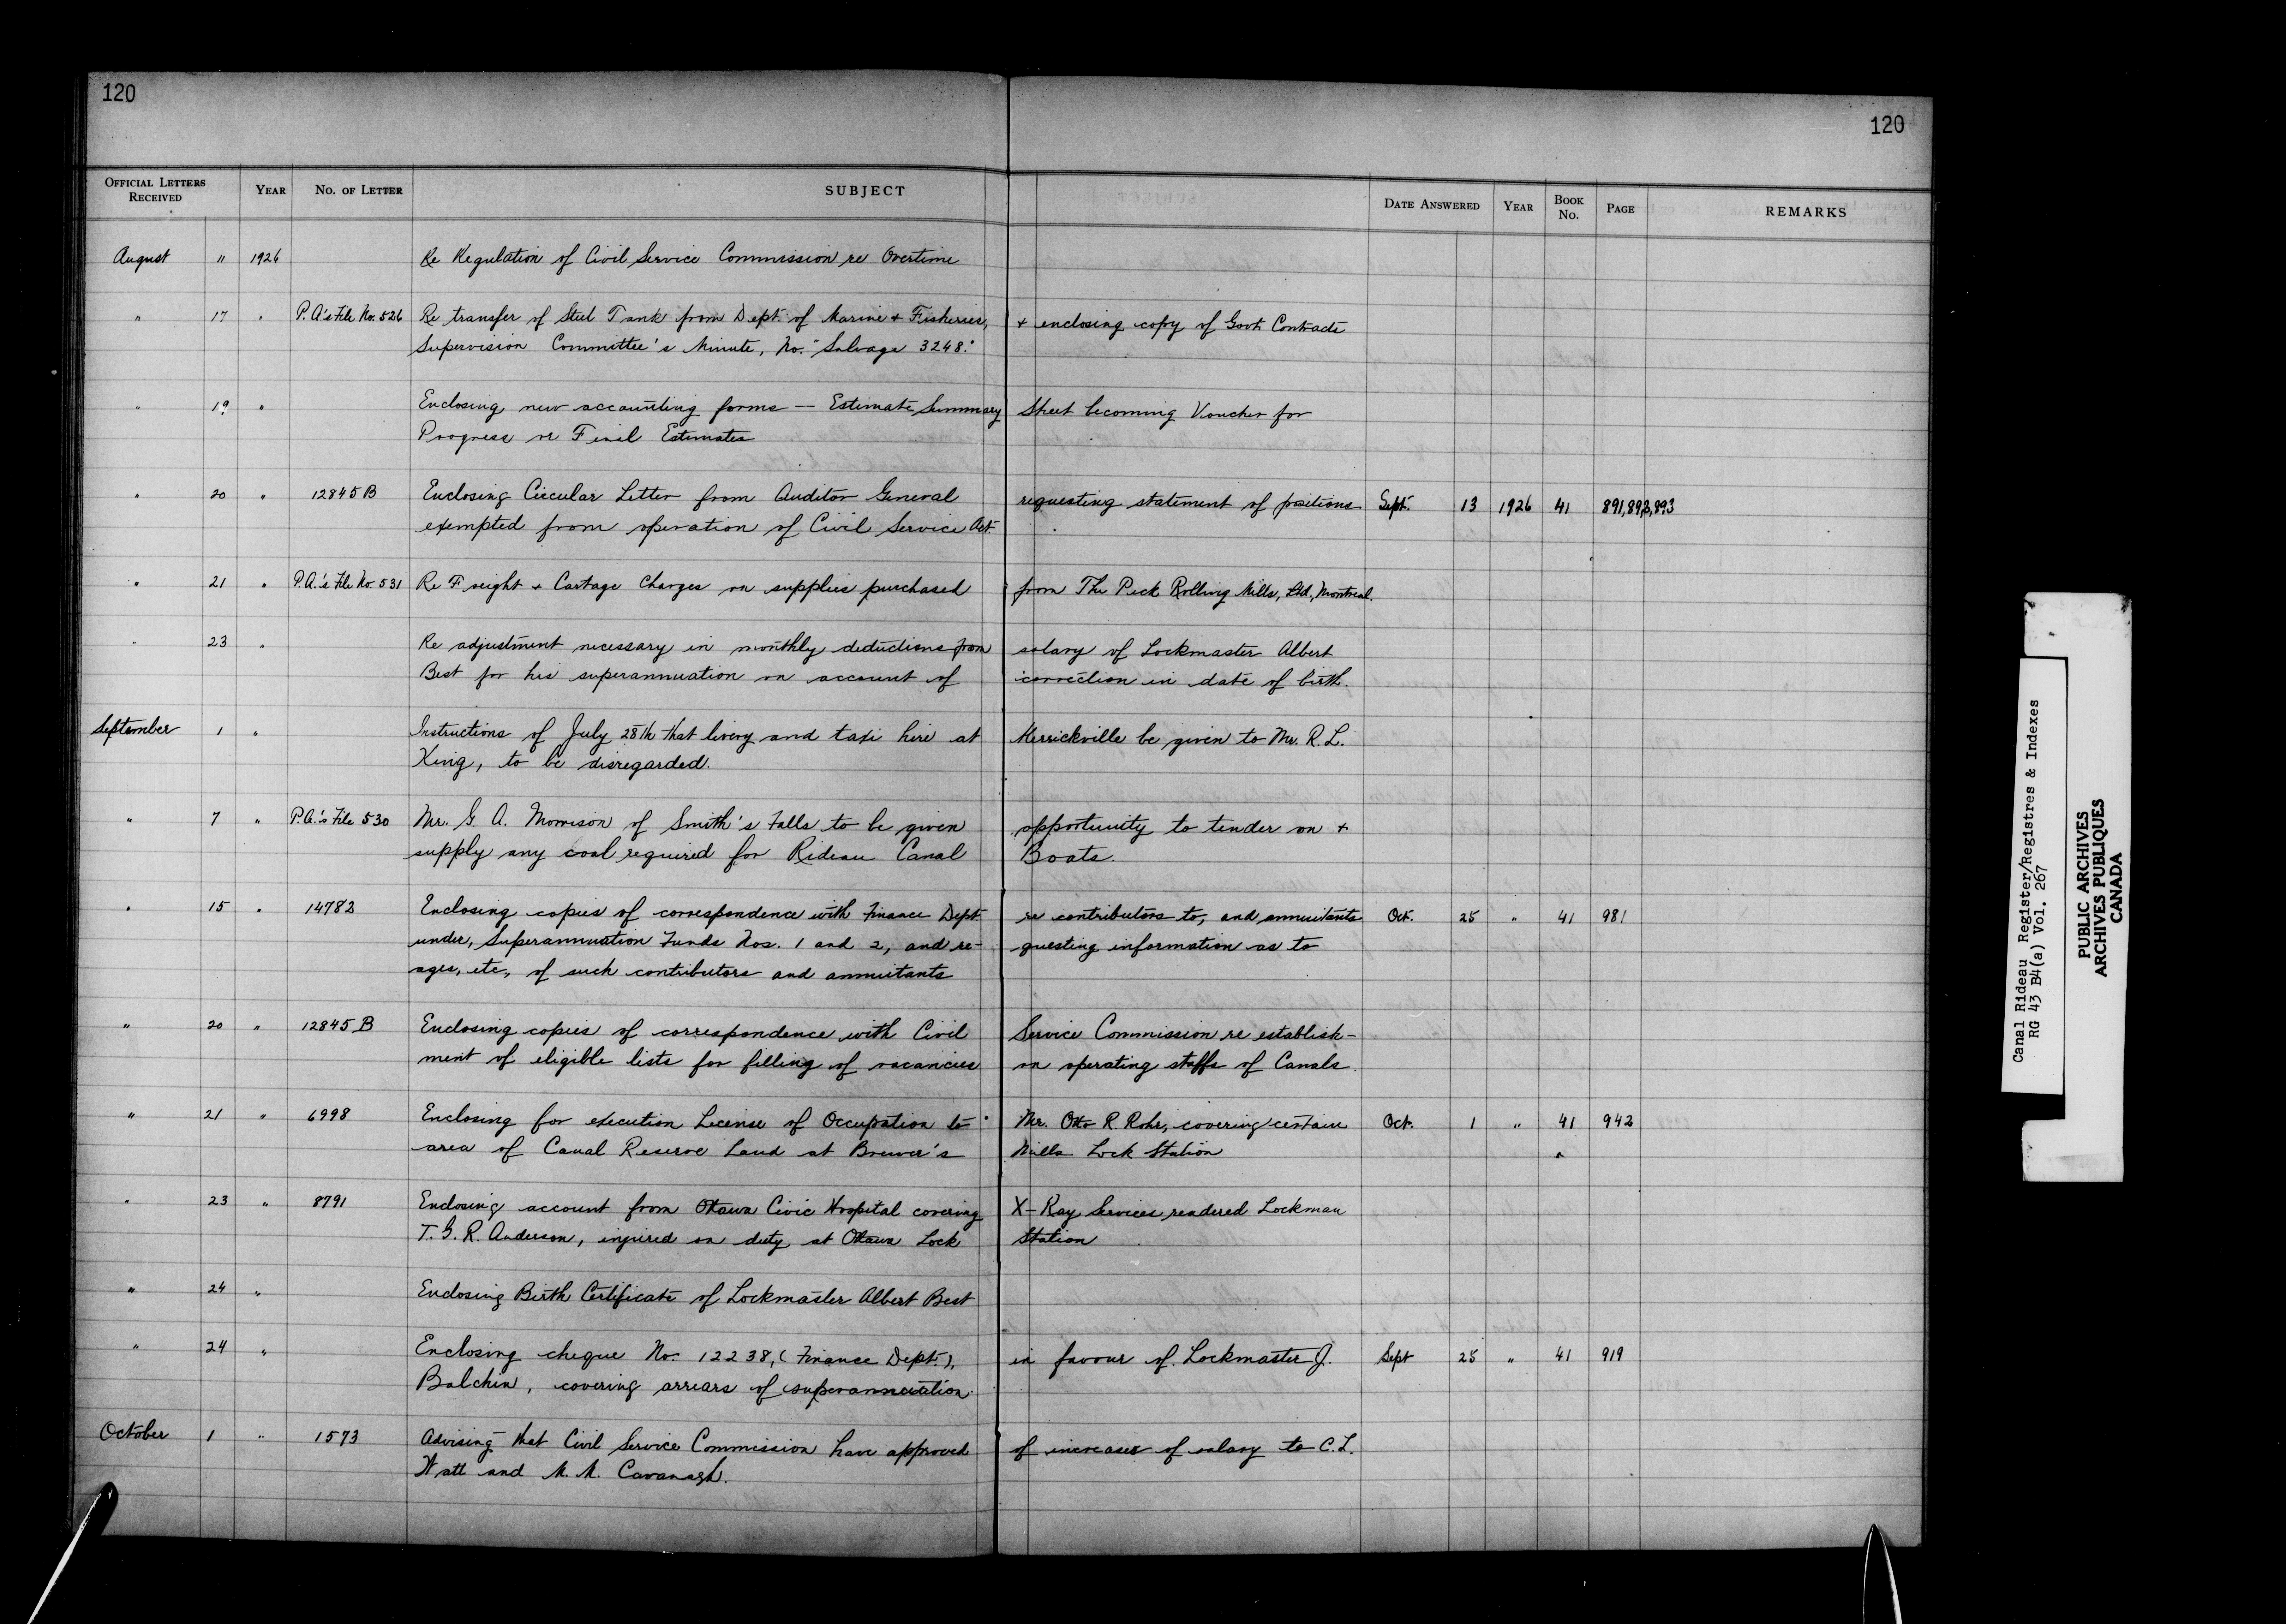 120
120
OFFICIAL LETTERS RECEIVED YEAR NO. OF LETTER SUBJECT DATE ANSWERED YEAR BOOK NO. PAGE REMARKS
August 11 1926 Re Regulation of Civil Service Commission re Overtime
" 17 " P.A.'s File No. 526 Re transfer of Steel Tank from Dept. of Marine + Fisheries, + enclosing copy of Govt. Contracts
Supervision Committee's Minute, No. "Salvage 3248."
" 19 " Enclosing new accounting forms — Estimate Summary Sheet becoming Voucher for
Progress or Final Estimates
" 20 " 12845 B Enclosing Circular Letter from Auditor General requesting statement of positions Sept. 13 1926 41 891,892,893
exempted from operation of Civil Service Act.
" 21 " P.A.'s File No. 531 Re Freight + Cartage Charges on supplies purchased from The Peck Rolling Mills, Ltd., Montreal.
" 23 " Re adjustment necessary in monthly deductions from salary of Lockmaster Albert
Best for his superannuation on account of correction in date of birth.
September 1 " Instructions of July 28th that livery and taxi hire at Merrickville be given to Mr. R. L.
King, to be disregarded.
" 7 " P.A.'s File 530 Mr. G. A. Morrison of Smith's Falls to be given opportunity to tender on +
supply any coal required for Rideau Canal Boats.
" 15 " 14782 Enclosing copies of correspondence with Finance Dept. re contributors to, and annuitants Oct. 25 " 41 981
under, Superannuation Funds Nos. 1 and 2, and re- questing information as to
ages, etc, of such contributors and annuitants
" 20 " 12845 B Enclosing copies of correspondence with Civil Service Commission re establish-
ment of eligible lists for filling of vacancies on operating staffs of Canals.
" 21 " 6998 Enclosing for execution License of Occupation to Mr. Otto R. Rohr, covering certain Oct. 1 " 41 942
area of Canal Reserve Land at Brewer's Mills Lock Station
" 23 " 8791 Enclosing account from Ottawa Civic Hospital covering X-Ray Services rendered Lockman
T. G. R. Anderson, injured on duty at Ottawa Lock Station
" 24 " Enclosing Birth Certificate of Lockmaster Albert Best
" 24 " Enclosing cheque No. 12238, (Finance Dept.), in favour of Lockmaster J. Sept 25 " 41 919
Balchin, covering arrears of superannuation.
October 1 " 1573 Advising that Civil Service Commission have approved of increases of salary to C. L.
Watt and M. M. Cavanagh.
Canal Rideau Register/Registres & Indexes
RG 43 B4(a) Vol. 267
PUBLIC ARCHIVES
ARCHIVES PUBLIQUES
CANADA